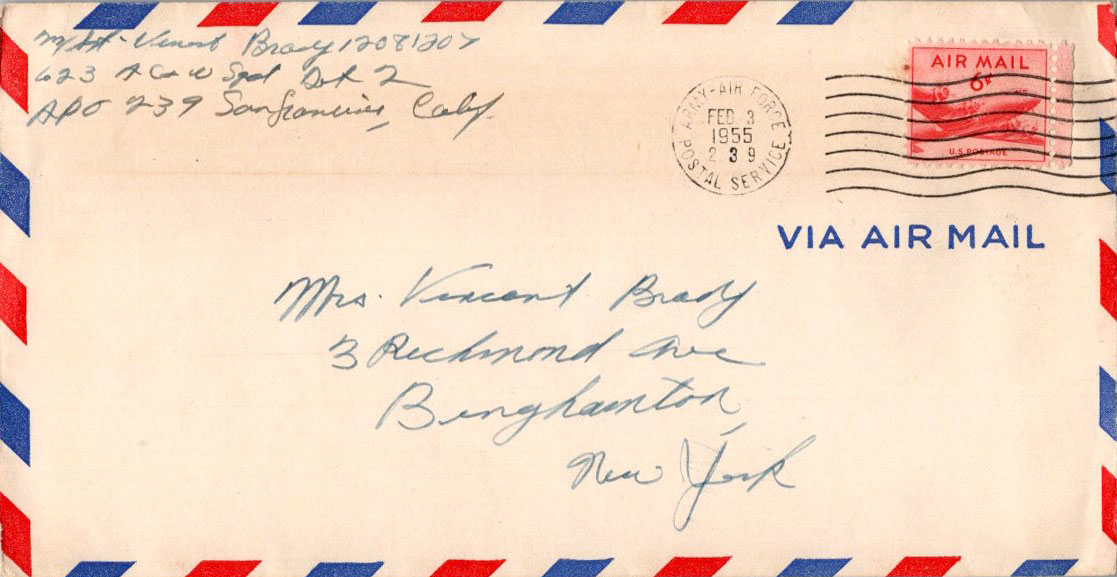 M/Sgt. Vincent Brady 12081207
623 AC&W Sqd Det 2
APO 239 San Francisco, Calif.
ARMY-AIR FORCE
FEB 3
1955
2 3 9
POSTAL SERVICE
AIR MAIL
6¢
U.S. POSTAGE
VIA AIR MAIL
Mrs. Vincent Brady
3 Richmond Ave
Binghamton,
New York